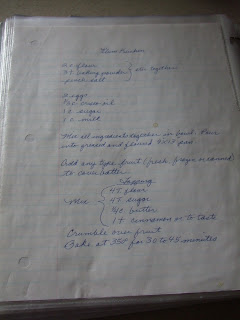 2 c. flour
3 t. baking powder } sift together
pinch salt
2 eggs
1/2 c. oil
1 c. sugar
1 c. milk
Mix all ingredients together in bowl. Pour
into greased and floured 9x13 pan
Add any type fruit (fresh, frozen or canned)
to cover batter.
Topping
Mix { 4T. flour
4T. sugar
butter
1 t. cinnamon or to taste
Crumble over fruit
Bake at 350° for 30 to 45 minutes